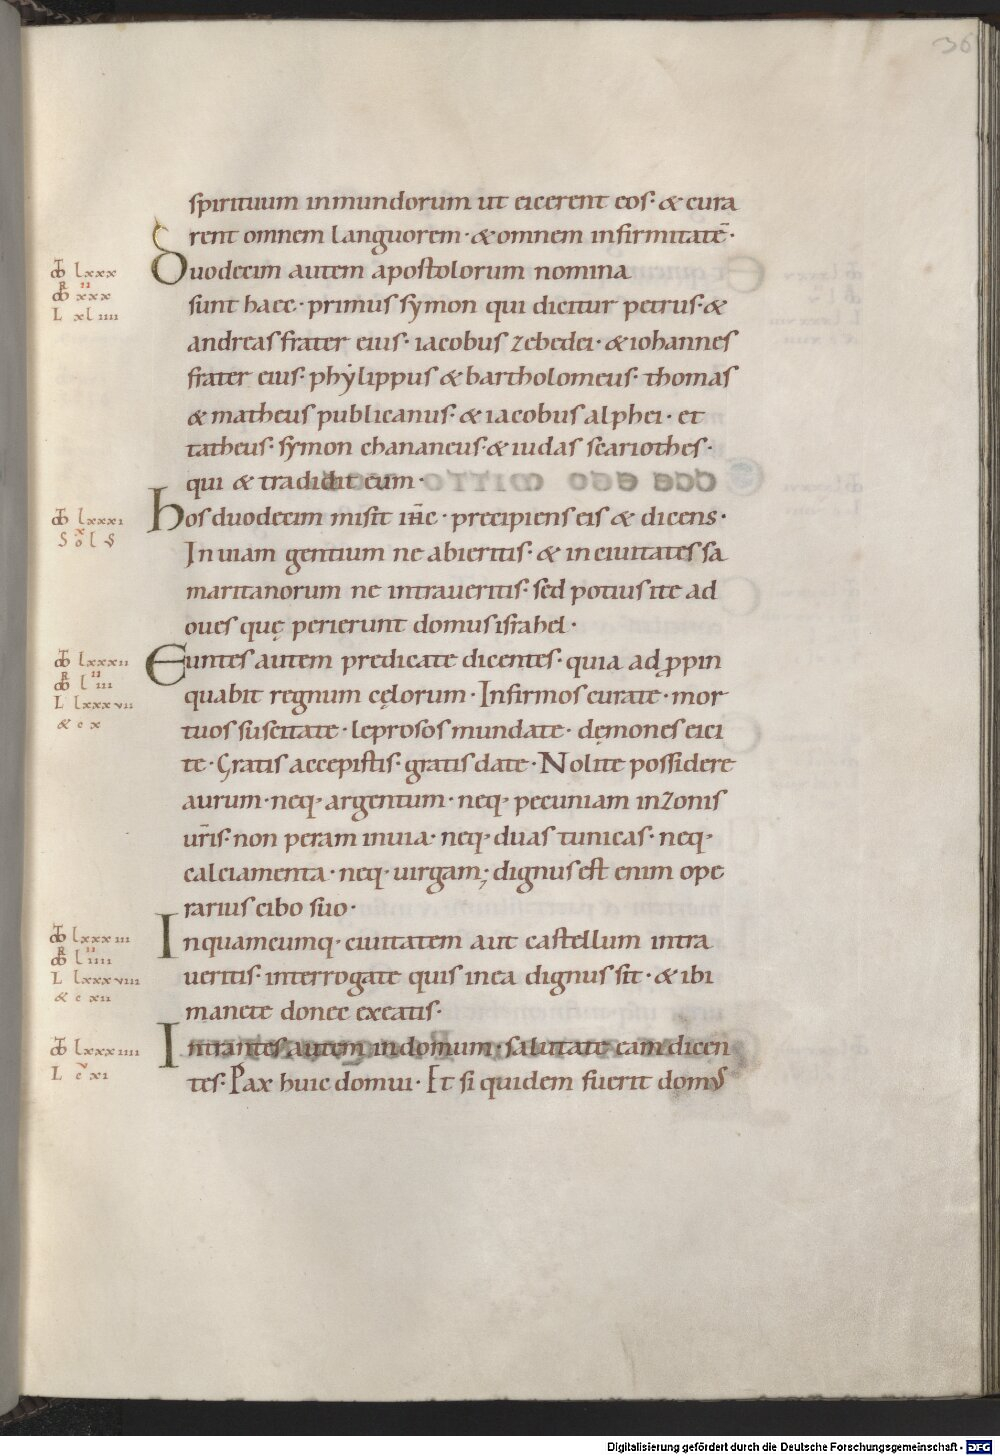 36
spirituum inmundorum ut eicerent eos· & cura
rent omnem languorem· & omnem infirmitatē·
Duodecim autem apostolorum nomina
sunt haec· primus symon qui dicitur petrus· &
andreas frater eius· iacobus zebedei· & iohannes
frater eius· phylippus & bartholomeus· thomas
& matheus publicanus· & iacobus alphei· et
tatheus· symon chananeus· & iudas scariothes·
qui & tradidit eum·
hos duodecim misit ih̅c· precipiens eis & dicens·
In uiam gentium ne abieritis· & in ciuitates sa
maritanorum ne intraueritis· sed potius ite ad
oues quę perierunt domus israhel·
Euntes autem predicate dicentes· quia adp̱ropin
quabit regnum cęlorum· Infirmos curate· mor
tuos suscitate· leprosos mundate· dęmones eici
te· Gratis accepistis· gratis date· Nolite possidere
aurum· neq· argentum· neq· pecuniam in zonis
ur̅is· non peram in uia· neq· duas tunicas· neq·
calciamenta· neq· uirgam; dignus est enim ope
rarius cibo suo·
In quamcumq· ciuitatem aut castellum intra
ueritis· interrogate quis in ea dignus sit· & ibi
manete donec exeatis·
Intrantes autem in domum· salutate eam dicen
tes· Pax huic domui· Et si quidem fuerit domus
lxxx
xxx
L xl iiii
lxxxi
lxxxii
l iii
L lxxxvii
& c x
lxxxiii
l iiii
L lxxxviii
& c xii
lxxxiiii
L c xi
Digitalisierung gefördert durch die Deutsche Forschungsgemeinschaft - DFG